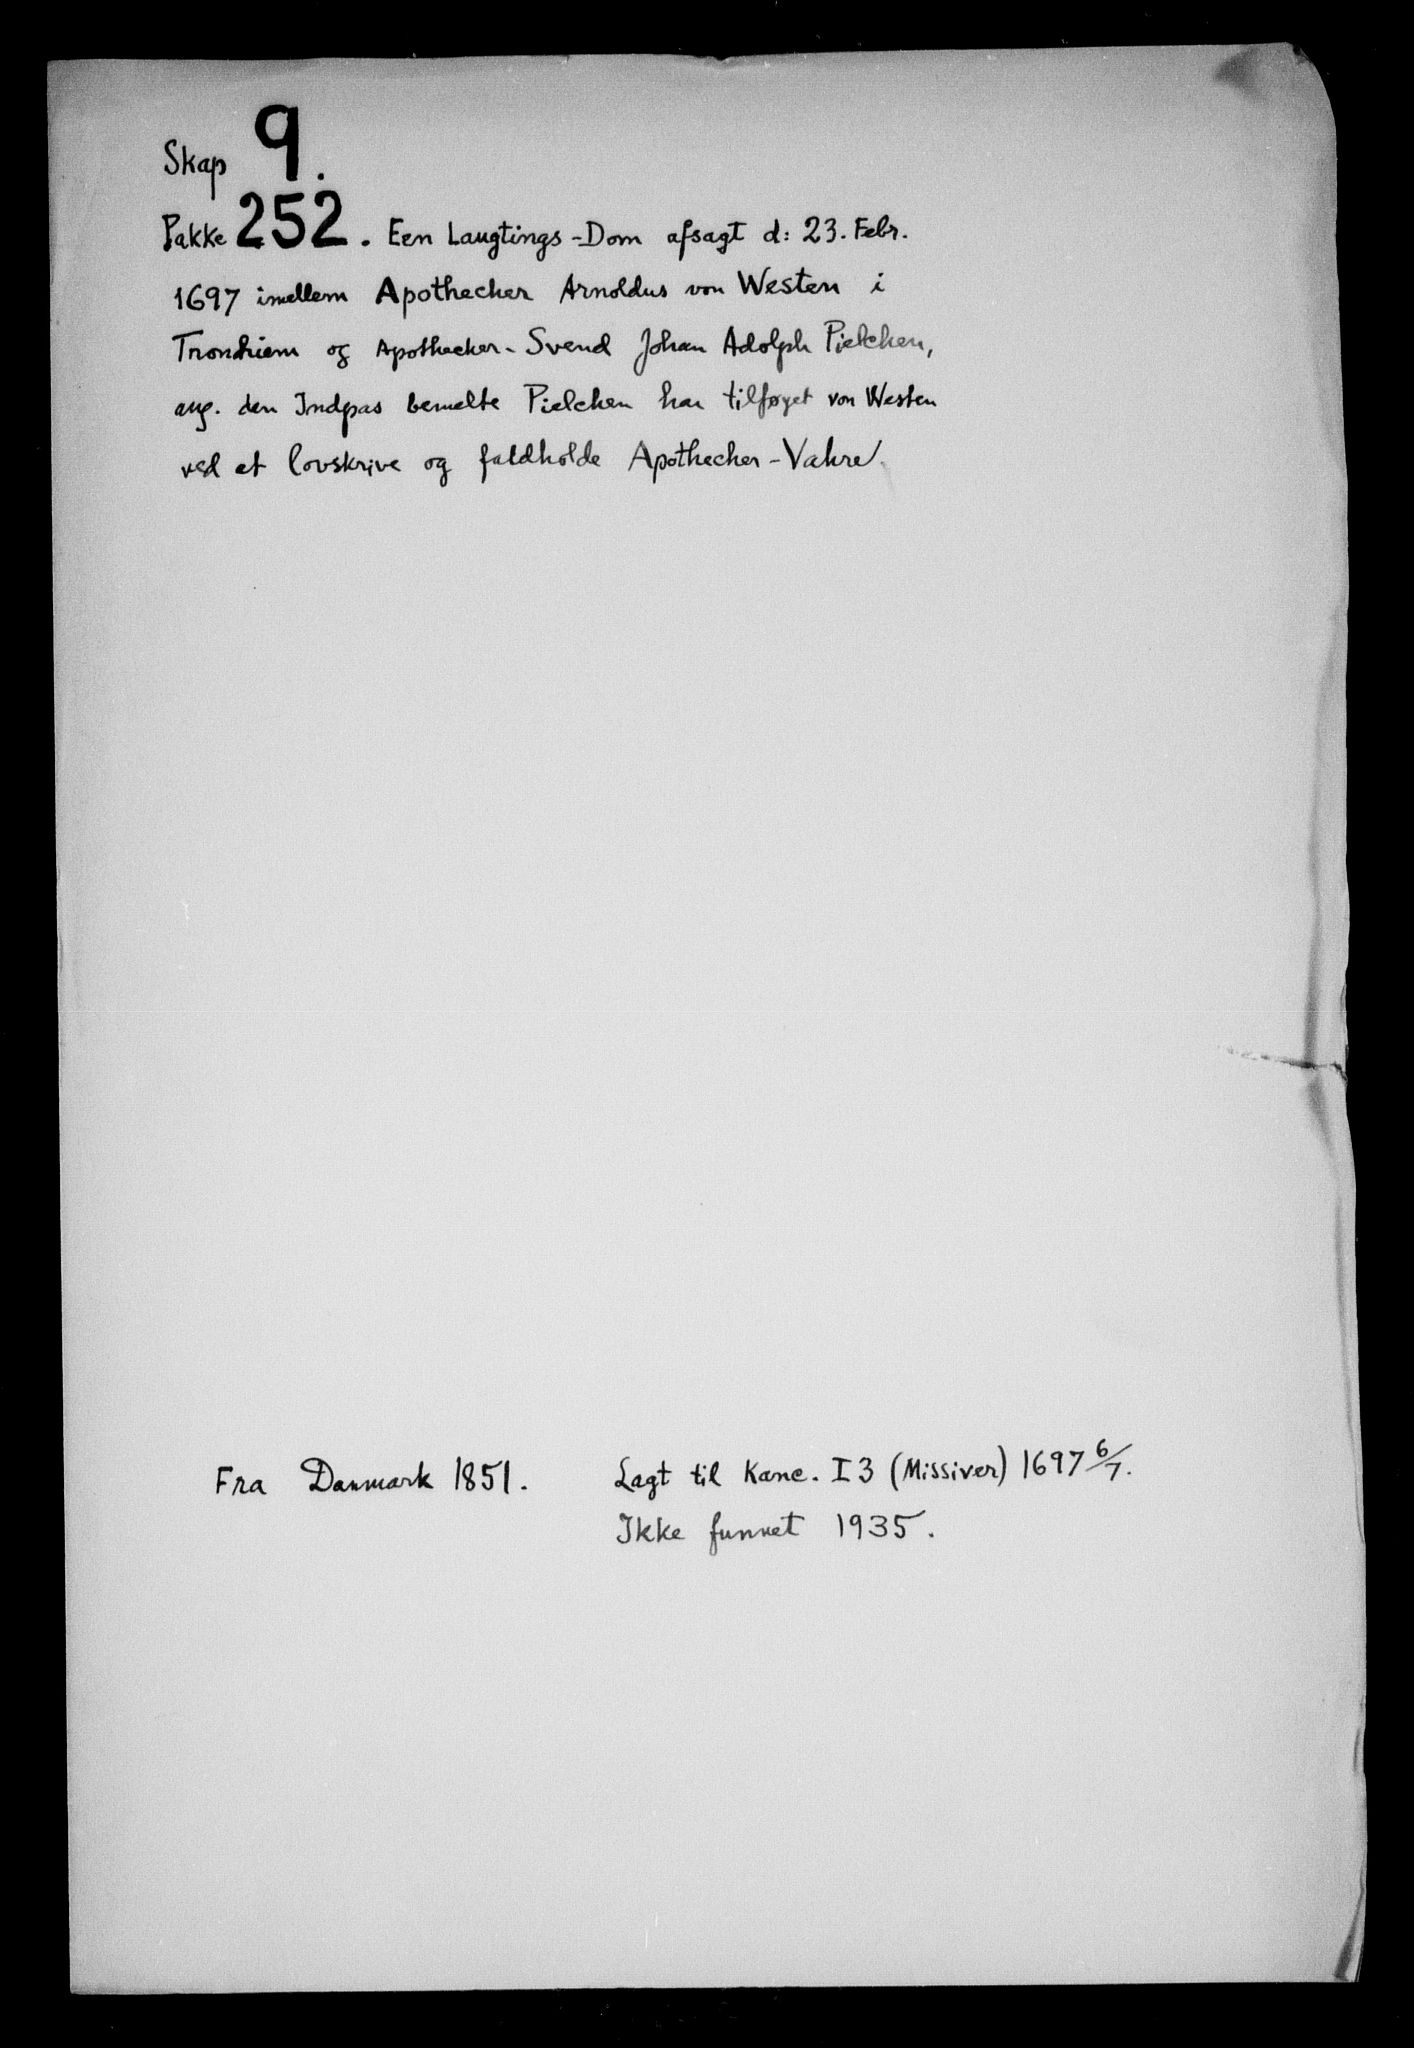 Skap 9.
Pakke 252. Een Laugtings-Dom afsagt d: 23. Febr.
1697 imellem Apothecher Arnoldus von Westen i
Trondhiem og Apothecker-Svend Johan Adolph Pielchen,
ang. den Indpas bemelte Pielchen har tilføyet von Westen
ved at lovskrive og faldholde Apothecher-Vahre.
Fra Danmark 1851.
Lagt til Kanc. I 3 (Missiver) 1697 6/7.
Ikke funnet 1935.